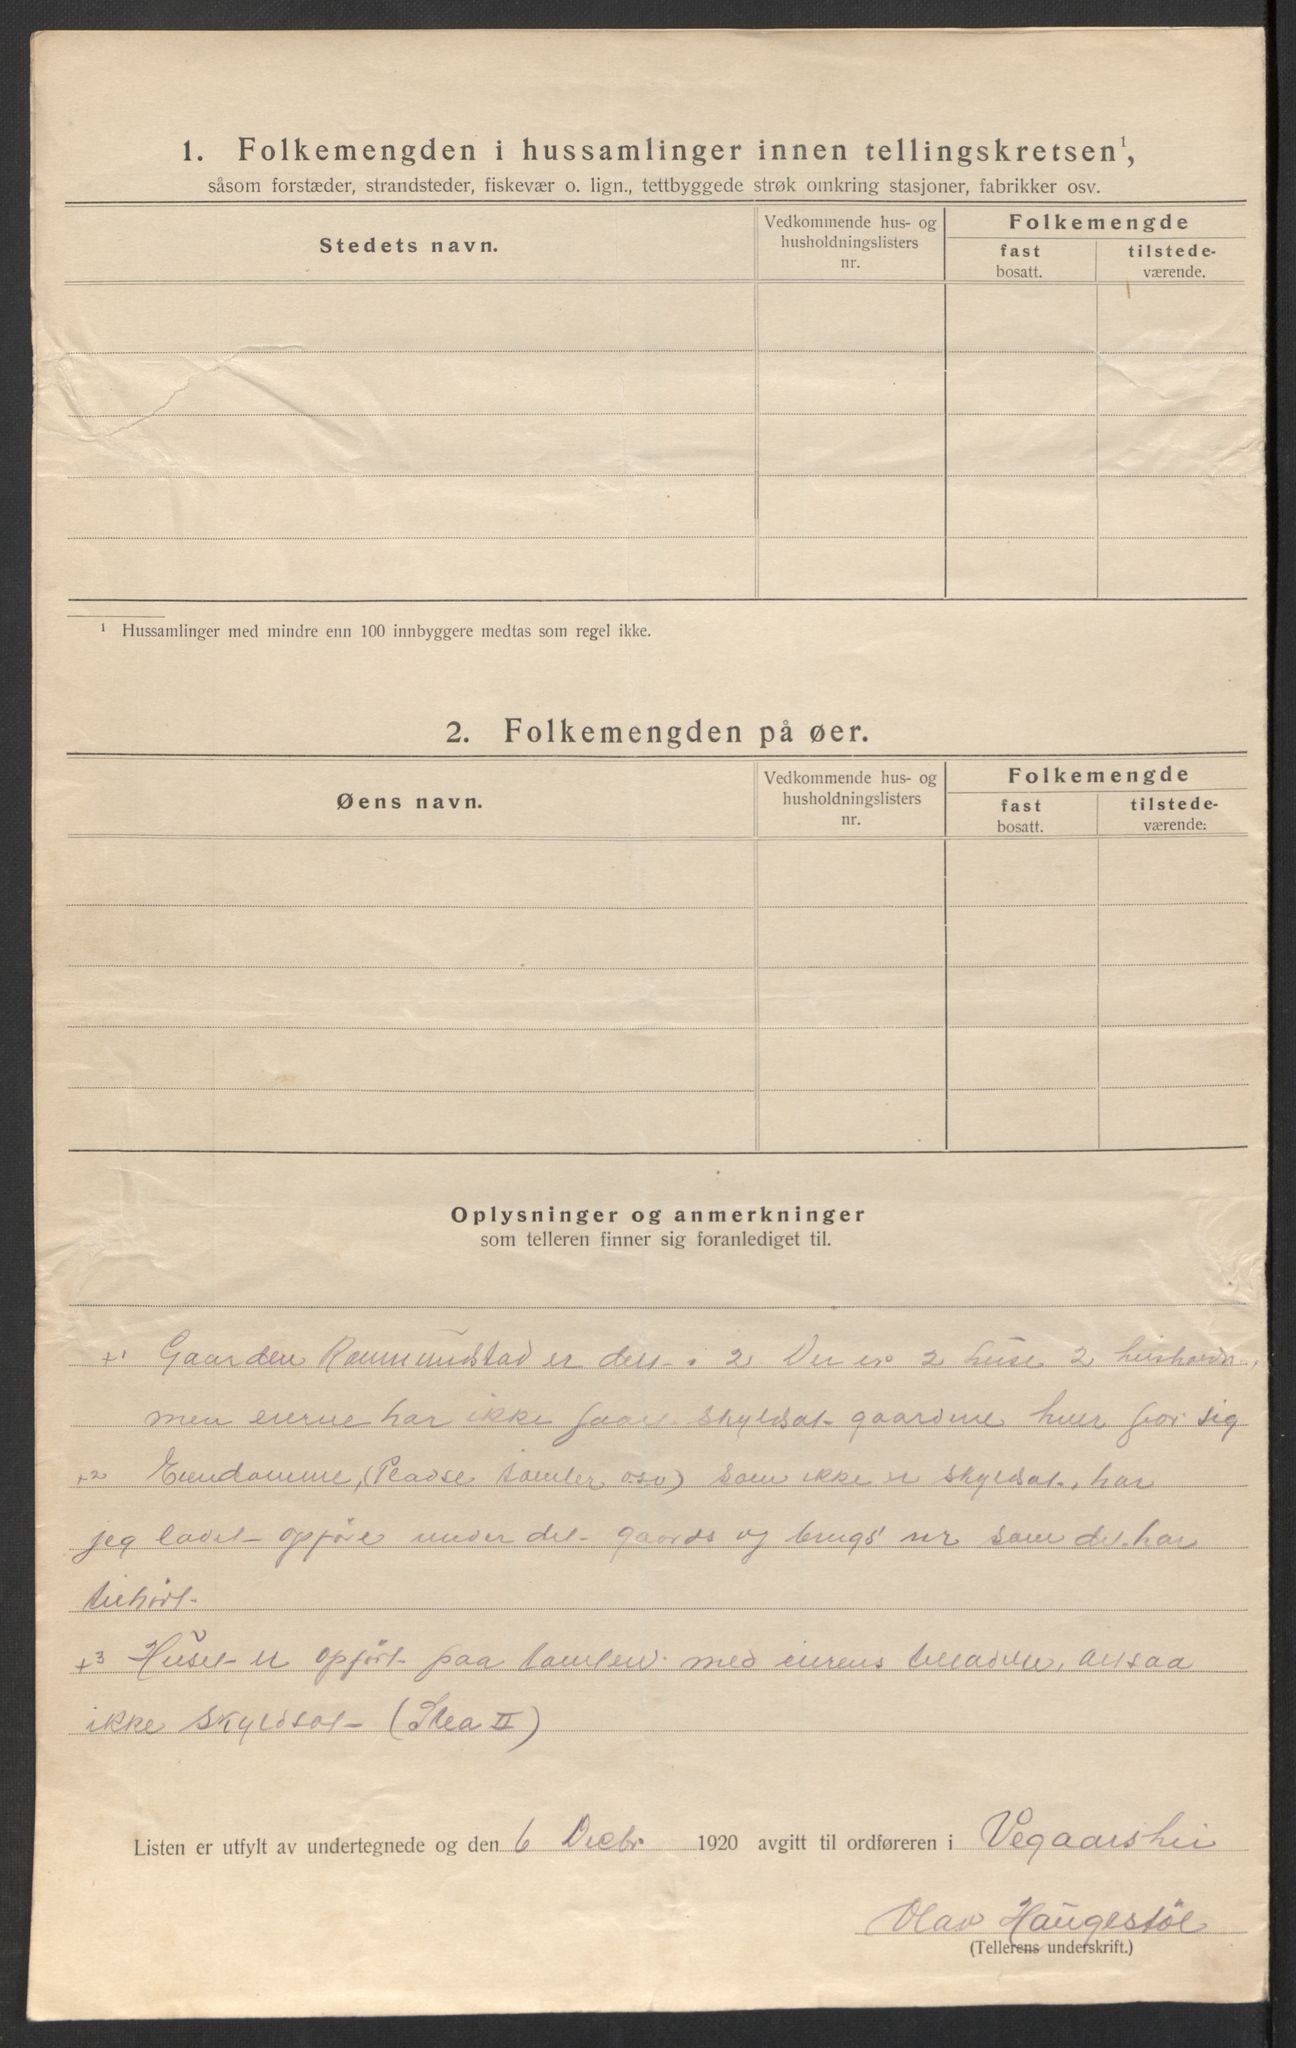 1. Folkemengden i hussamlinger innen tellingskretsen¹,
såsom forstæder, strandsteder, fiskevær o. lign., tettbyggede strøk omkring stasjoner, fabrikker osv.
Stedets navn.
Vedkommende hus- og
husholdningslisters
nr.
Folkemengde
fast
bosatt.
tilstede-
værende.
¹ Hussamlinger med mindre enn 100 innbyggere medtas som regel ikke.
2. Folkemengden på øer.
Øens navn.
Vedkommende hus- og
husholdningslisters
nr.
Folkemengde
fast
bosatt.
tilstede-
værende.
Oplysninger og anmerkninger
som telleren finner sig foranlediget til.
+1 Gaarden Rammundstad er delt i 2 Der er 2 huse 2 hushold.
men eierne har ikke faaet skyldsat gaardene hver for sig
+2 Eiendomme, (Pladse tomter osv) som ikke er skyldsat, har
jeg ladet opføre under det gaards og brugs nr som det har
tilhørt
+3 Huset er opført paa tomten med eierens tilladelse, altsaa
ikke skyldsat (Stea II)
Listen er utfylt av undertegnede og den 6 Decbr 1920 avgitt til ordføreren i Vegaarshei
Olav Haugestøl
(Tellerens underskrift.)